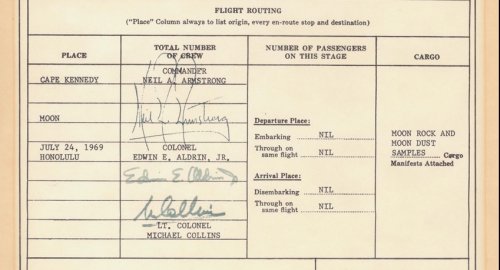 FLIGHT ROUTING
("Place" Column always to list origin, every en-route stop and destination)
PLACE
TOTAL NUMBER
OF CREW
NUMBER OF PASSENGERS
ON THIS STAGE
CARGO
CAPE KENNEDY
COMMANDER
NEIL A. ARMSTRONG
Neil A. Armstrong
MOON
JULY 24, 1969
HONOLULU
COLONEL
EDWIN E. ALDRIN, JR.
Edwin E. Aldrin Jr
M Collins
LT. COLONEL
MICHAEL COLLINS
Departure Place:
Embarking NIL
Through on
same flight NIL
Arrival Place:
Disembarking NIL
Through on
same flight NIL
MOON ROCK AND
MOON DUST
SAMPLES Cargo
Manifests Attached